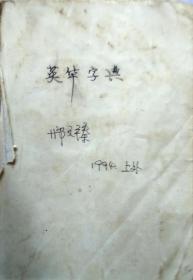 英华字典
邢文臻
1994. 上外